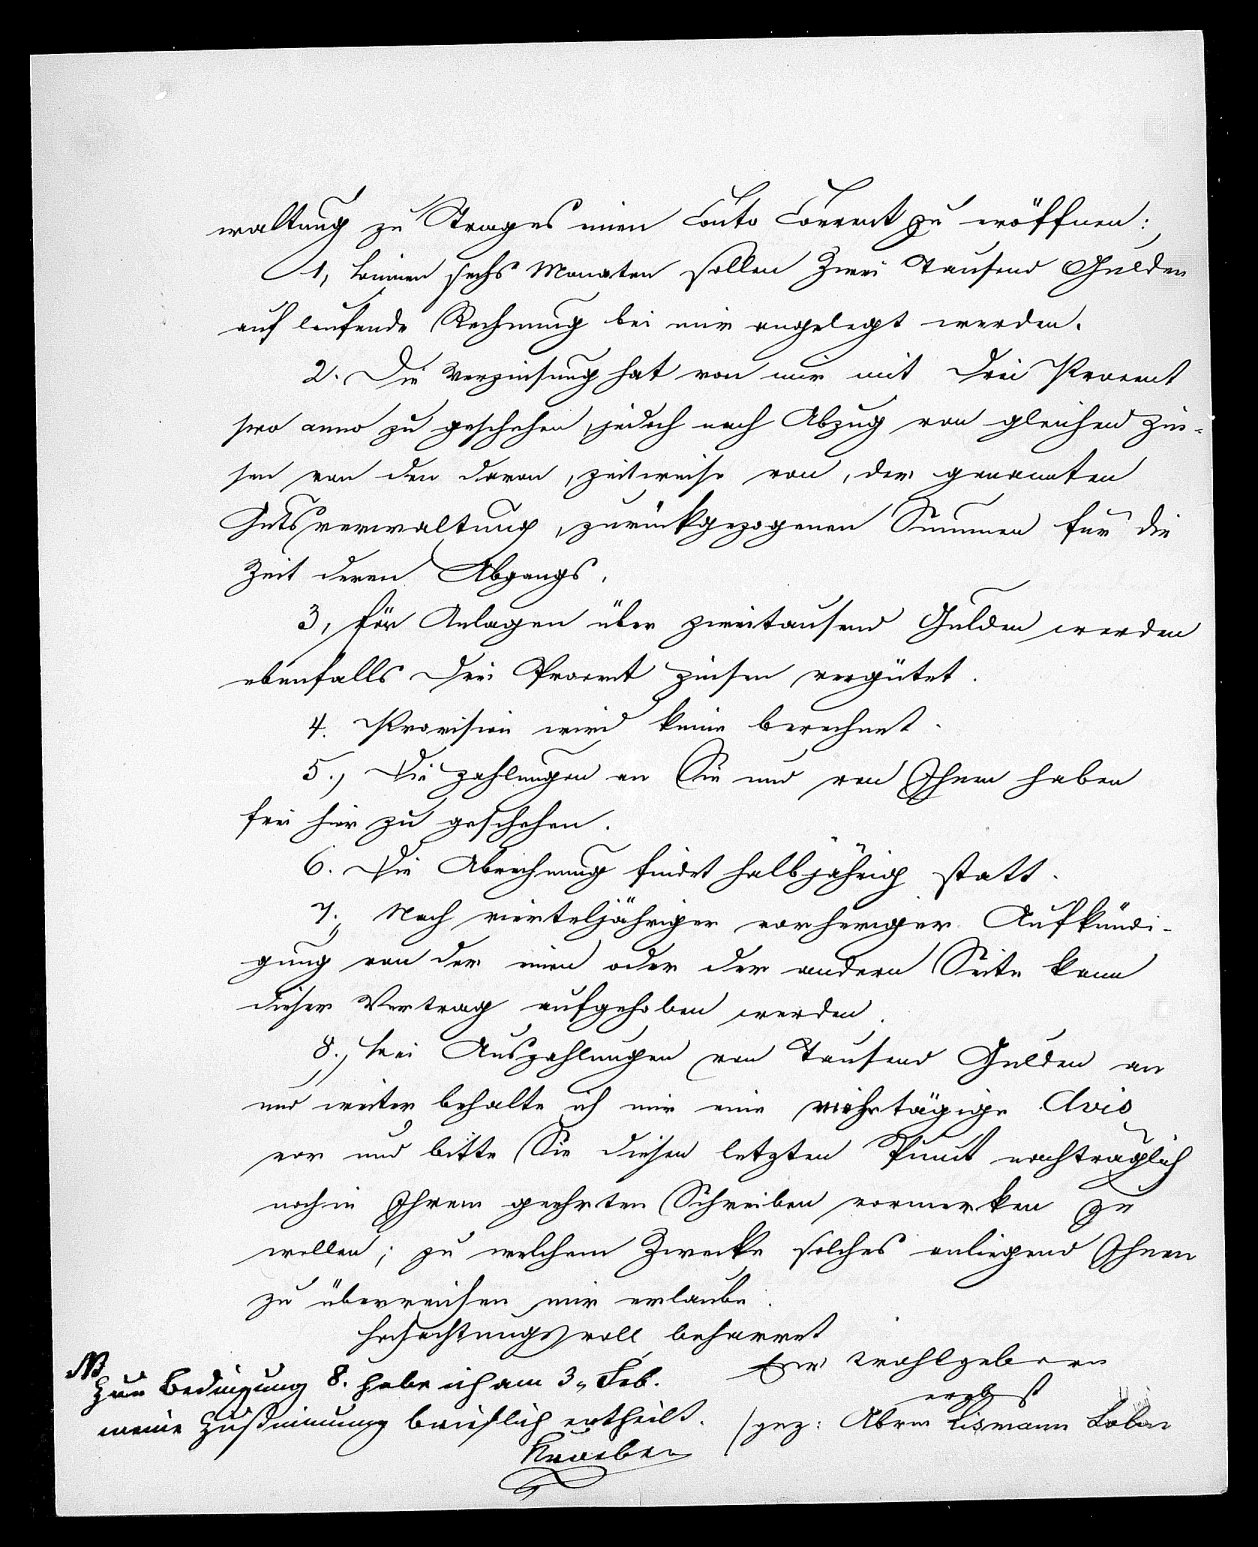 waltung zu Strages einen Conto Corrent zu eröffnen:
1, binnen sechs Monaten sollen Zwei Tausend Gulden
auf laufende Rechnung bei mir angelegt werden.
2. Die Verzinsung hat von mir mit Drei Procent
pro anno zu geschehen, jedoch nach Abzug von gleichen Zin-
sen von den davon, zeitweise von, der genannten
Gutsverwaltung, zurückgezogenen Summen für die
Zeit deren Abgangs.
3, für Anlagen über zweitausend Gulden werden
ebenfalls Drei Procent Zinsen vergütet.
4. Provision wird keine berechnet.
5., Die Zahlungen an Sie und von Ihnen haben
frei hier zu geschehen.
6. Die Abrechnung findet halbjährig statt.
7., Nach vierteljähriger vorheriger Aufkündi-
gung von der einen oder der andern Seite kann
dieser Vertrag aufgehoben werden.
8., bei Auszahlungen von Tausend Gulden an
und weiter behalte ich mir eine mehrtägige Avis
vor und bitte Sie diesen letzten Punct nachträglich
noch in Ihrem geehrten Schreiben vormerken zu
wollen; zu welchem Zwecke solches anliegend Ihnen
zu überreichen mir erlaube.
hochachtungsvoll beharret
Euer Wohlgeborn
ergbst
/gez: Abrm Lismann
NB
Zur Bedingung 8. habe ich am 3., Feb.
meine Zustimmung brieflich ertheilt.